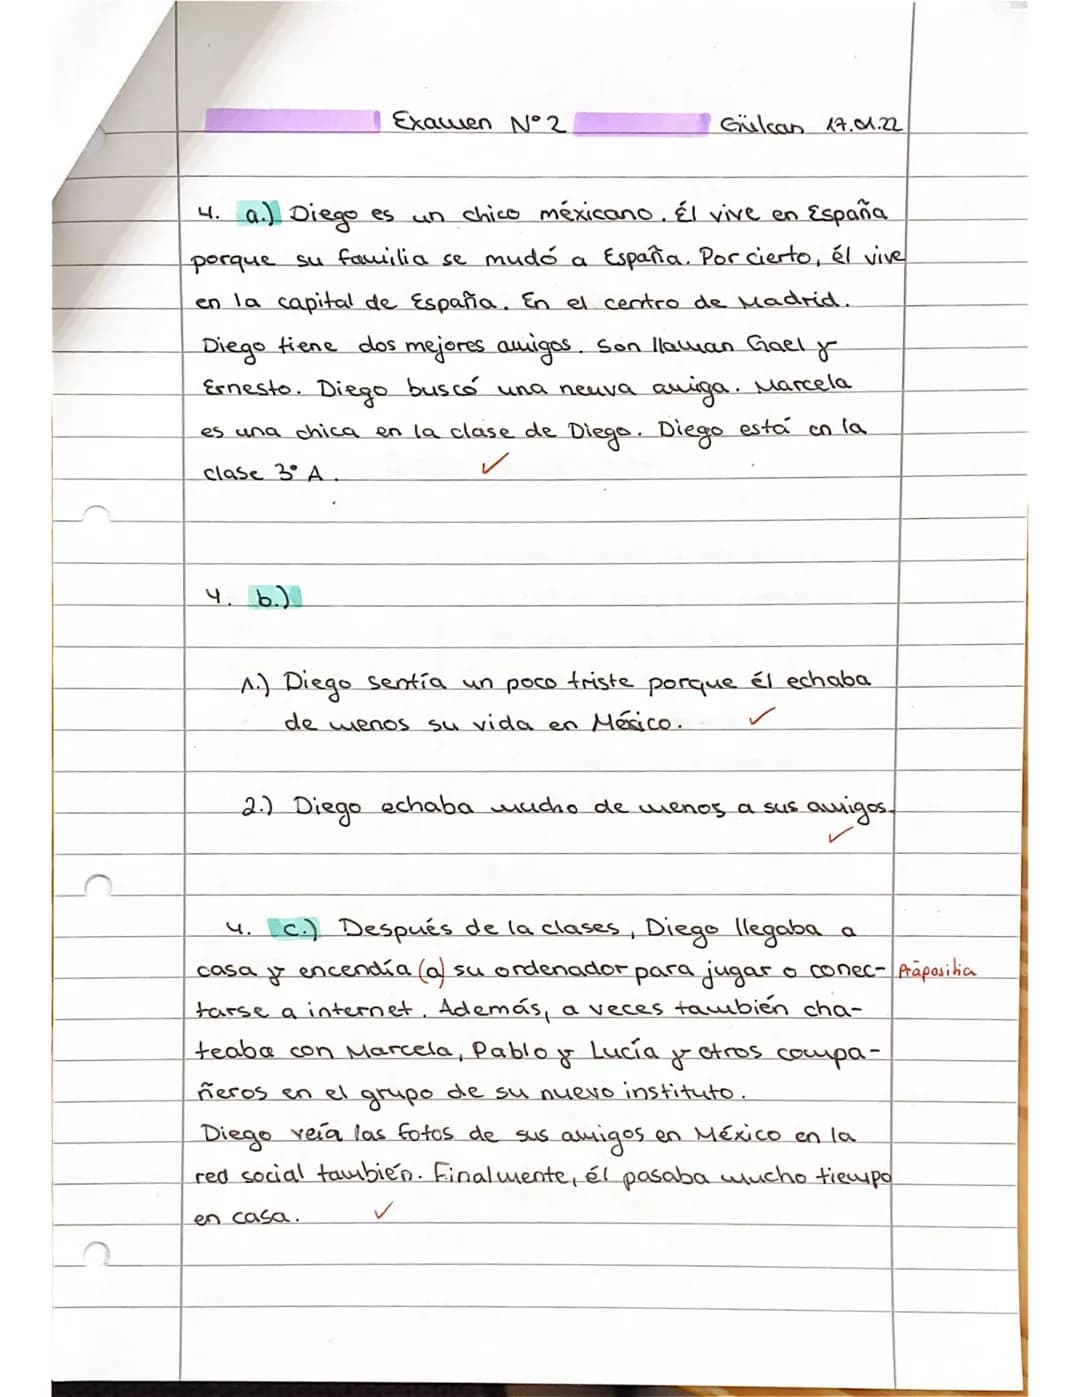 Examen N° 2 Gülcan 17.01.22
4. a.) Diego es un chico méxicano. Él vive en España
porque su familia se mudó a España. Por cierto, él vive
en la capital de España. En el centro de Madrid.
Diego tiene dos mejores amigos. Son llaman Gael y
Ernesto. Diego buscó una neuva amiga. Marcela
es una chica en la clase de Diego. Diego está en la
clase 3° A. ✓
4. b.)
1.) Diego sentía un poco triste porque él echaba
de menos su vida en México. ✓
2.) Diego echaba mucho de menos a sus amigos. ✓
4. c.) Después de la clases, Diego llegaba a
casa y encendía (a) su ordenador para jugar o conec- Präposition
tarse a internet. Además, a veces también cha-
teaba con Marcela, Pablo y Lucía y otros compa-
ñeros en el grupo de su nuevo instituto.
Diego veía las fotos de sus amigos en México en la
red social también. Finalmente, él pasaba mucho tiempo
en casa. ✓